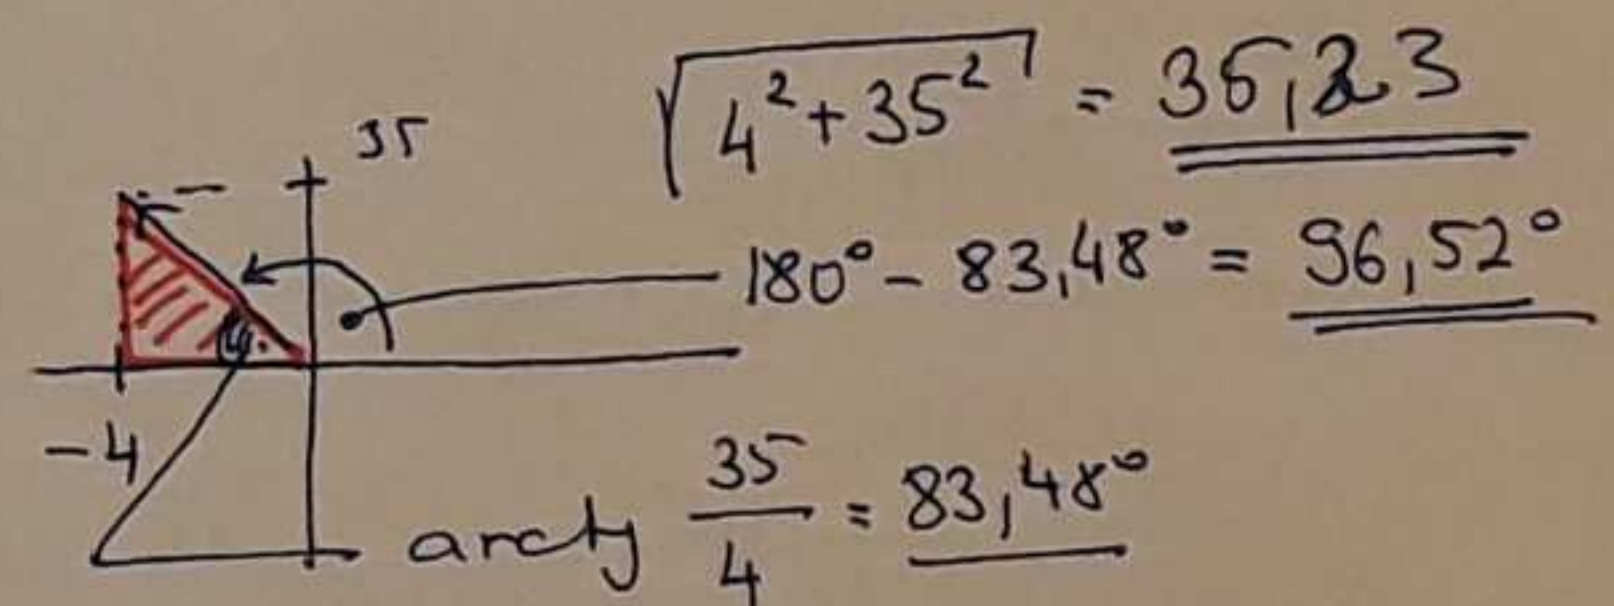 √4² + 35² = 35,23
35
180° - 83,48° = 96,52°
-4
arctg 35/4 = 83,48°